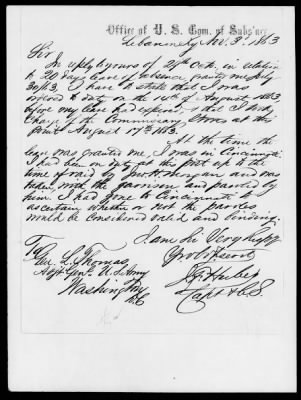 Office of U. S. Com. of Subs'nce
Lebanon Ky Nov. 3rd 1863
Sir
In reply to yours of 29th Oct. in relation
to 20 days leave of absence granted me July
30/63. I have to state that I was
ordered to duty on the 15th of August 1863
before my leave had expired, & that I took
Charge of the Commissary Stores at this
point August 17th 1863.
At the time the
leave was granted me, I was in Cincinnati
I had been on duty at this post up to the
time of raid by Jno. H. Morgan and was
taken with the garrison and paroled by
him. I had gone to Cincinnati to
ascertain whether or not the paroles
would be considered valid and binding.
I am Sir Very Resply
Your Obt Servt
Capt & C.S.
To
Gen. L. Thomas
Adjt Genl. U.S. Army
Washington
D.C.